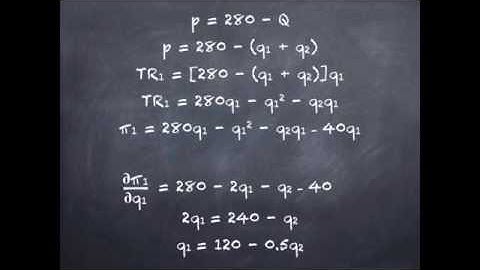 p = 280 - Q
p = 280 - (q₁ + q₂)
TR₁ = [280 - (q₁ + q₂)]q₁
TR₁ = 280q₁ - q₁² - q₂q₁
π₁ = 280q₁ - q₁² - q₂q₁ - 40q₁
∂π₁/∂q₁ = 280 - 2q₁ - q₂ - 40
2q₁ = 240 - q₂
q₁ = 120 - 0.5q₂